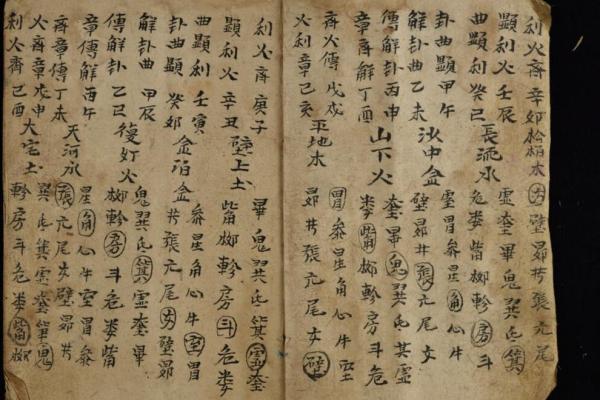 利火斉辛卯松柏木女壁昴井張亢尾
顕利火壬辰虚奎畢鬼翼氐箕
曲顕利癸巳長流水危娄觜柳軫房斗
卦曲顕甲午室胃参星角心牛
解卦曲乙未沙中金壁昴井張亢尾女
傳解卦丙申奎畢鬼翼氐箕虚
章斉解丁酉山下火娄觜柳軫房斗危
斉火傳戊戌胃参星角心牛室
火利章己亥平地木昴井張亢尾女壁
利火斉庚子畢鬼翼氐箕虚奎
顕利火辛丑壁上土觜柳軫房斗危娄
曲顕利壬寅参星角心牛室胃
卦曲顕癸卯金泊金井張亢尾女壁昴
解卦曲甲辰鬼翼氐箕虚奎畢
傳解卦乙巳復灯火柳軫房斗危娄觜
章傳解丙午星角心牛室胃参
斉章傳丁未天河水張亢尾女壁昴井
火斉章戊申翼氐箕虚奎畢鬼
利火斉己酉大宅土軫房斗危娄觜柳